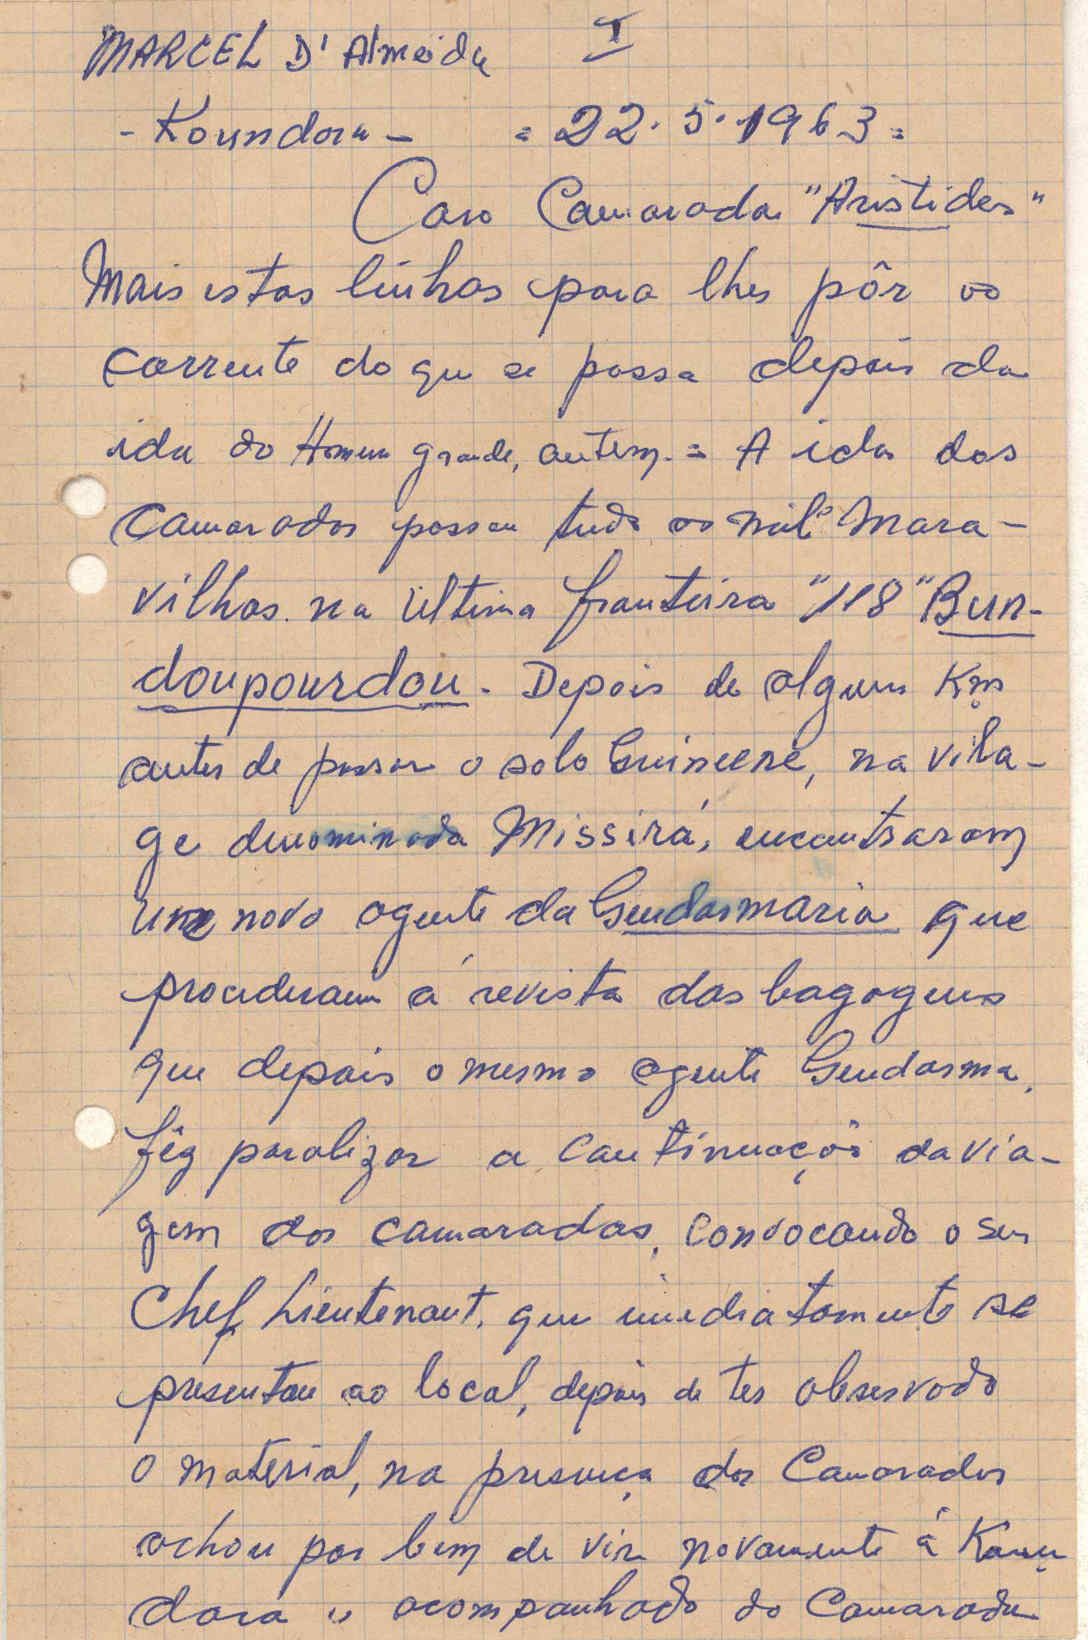 MARCEL D' Almeida I
- Koundara - = 22.5.1963 =
Caro Camarada "Aristides"
Mais estas linhas para lhes pôr ao
corrente do que se passa depois da
ida do Homem grande, antem. = A ida dos
Camarados passou tudo as mil Mara-
vilhas na Ultima fronteira "118" Bun-
doupourdou. Depois de alguns Kms
antes de passar o solo Guineene, na vila-
ge denominada Missirá, encontraram
um novo agente da Gendarmaria que
procederam á revista das bagagens
que depois o mesmo agente Gendarma,
fêz paralizar a continuação da via-
gem dos camaradas, convocando o seu
Chef Lieutenant, que imediatamente se
presentou ao local, depois de ter observado
O material, na presença dos Camarados
achou por bem de vir novamente á Koun
dara, acompanhado do Camarada